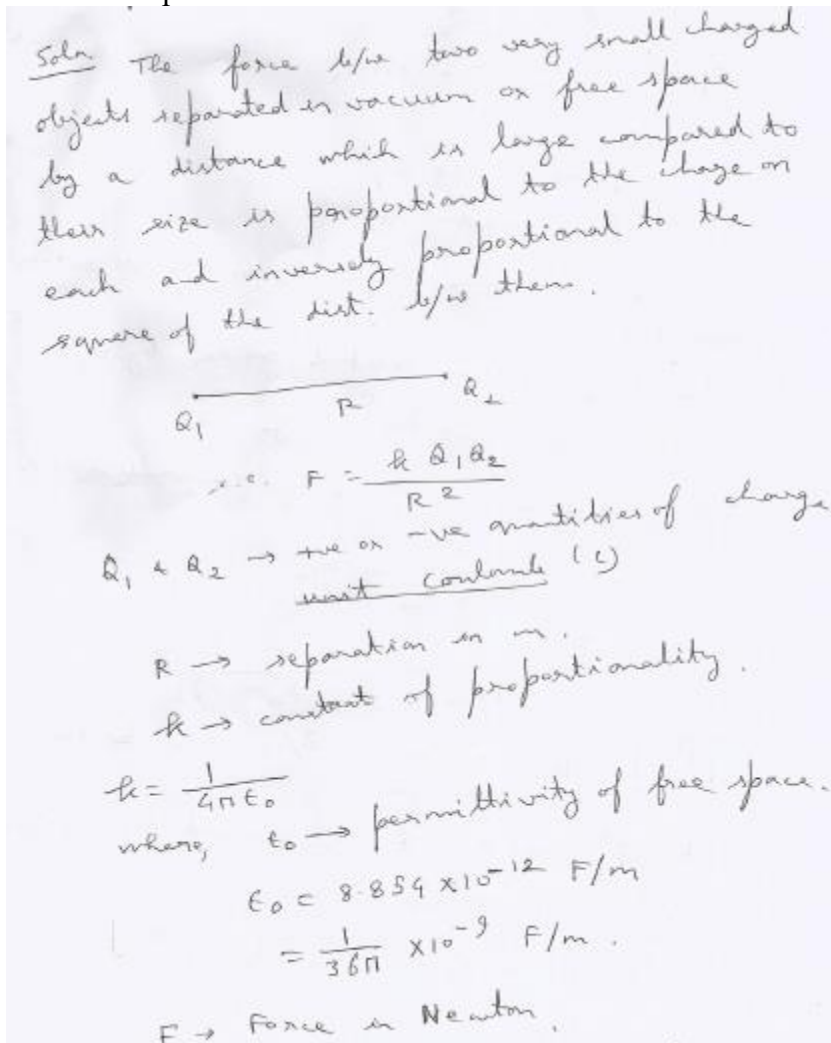 Soln The force b/w two very small charged
objects separated in vacuum or free space
by a distance which is large compared to
their size is proportional to the charge on
each and inversely proportional to the
square of the dist. b/w them.
Q1 R Q2
i.e. F = k Q1Q2 / R2
Q1 & Q2 → +ve or -ve quantities of charge
unit coulomb (C)
R → separation in m.
k → constant of proportionality.
k = 1 / 4π ε0
where, ε0 → permittivity of free space.
ε0 = 8.854 ×10-12 F/m
= 1 / 36π ×10-9 F/m.
F → Force in Newton.